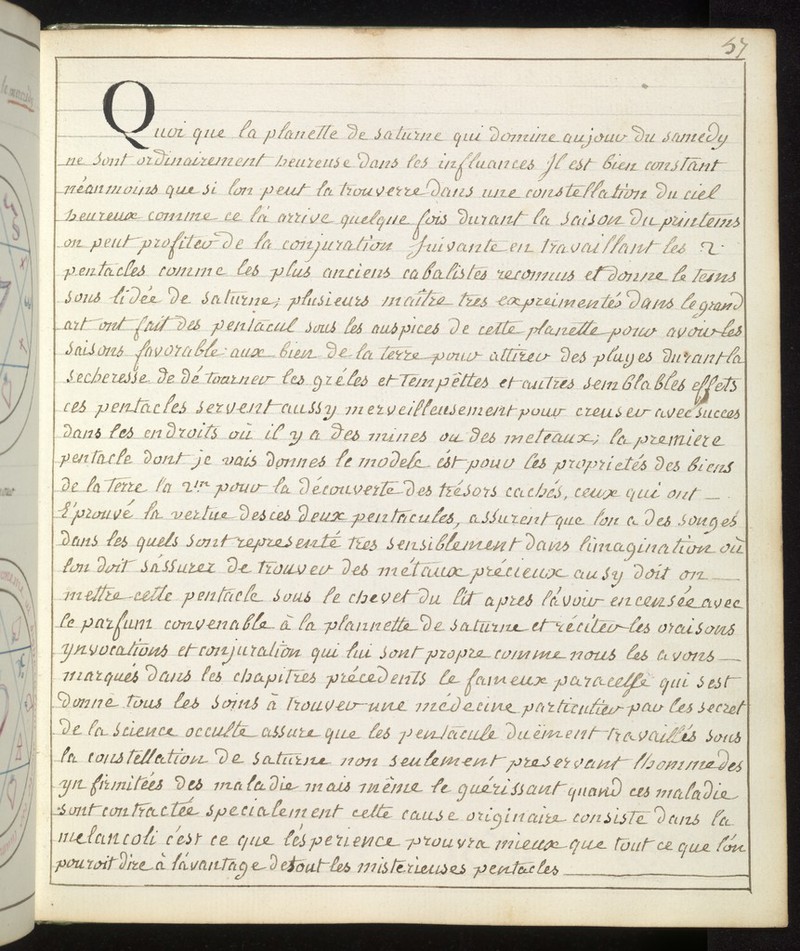 57
Quoi que la planette de saturne qui domine au jour du samedy
ne sont ordinairement heureuse dans les influances Il est bien constant
néanmoins que si lon peut la trouverre dans une constellation du ciel
heureux comme ce la arrive quelque fois durant la saison du printems
on peut profiter de la conjuration suivante en travaillant les 2
pentacles comme les plus anciens cabalistes reconnus et donne le tems
sous lidée de saturne; plusieurs maître tres expreimentés dans le grand
art ont fait des pentacul sous les auspices de cette planette pour avoir les
saisons favorable aux bien de la terre pour attirer des pluyes durant la
secheresse de dé tourner les gréles et tempêttes et autres semblables effets
ces pentacles servent aussy merveilleusement pour creuser avec succes
dans les endroits où il y a des mines ou des meteaux; la premiere
pentacle dont je vais donnes le modele ést pour les proprietés des biens
de la terre la 2me pour la découverte des trésors cachés, ceux qui ont
éprouvé la vertue desces deux pentacules, assurent que lon a des songes
dans les quels sont representé tres sensiblement dans limagination où
lon doit sássurer de trouver des métaux précieux ausy doit on
mettre cette pentacle sous le chevet du lit apres lávoir encensée avec
le parfum convenable à la plannette de saturne et réciter les oraisons
ynvocations et conjuration qui lui sont propre comme nous les avons
marqués dans les chapitres précedents le fameux paracelse qui sest
donné tous les soins à trouver une médecine particulier par les secret
de la science occulte assure que les pentacule duëment travaillés sous
la constellation de saturne non seulement preservant lhomme des
yn firmitées des maladie mais même le guérissant quand ces maladie
sont contractée specialement cette cause originaire consiste dans la
melancoli c'est ce que lésperience prouvra mieux que tout ce que lón
pouroit dire à lávantage de tout les misterieuses pentacles